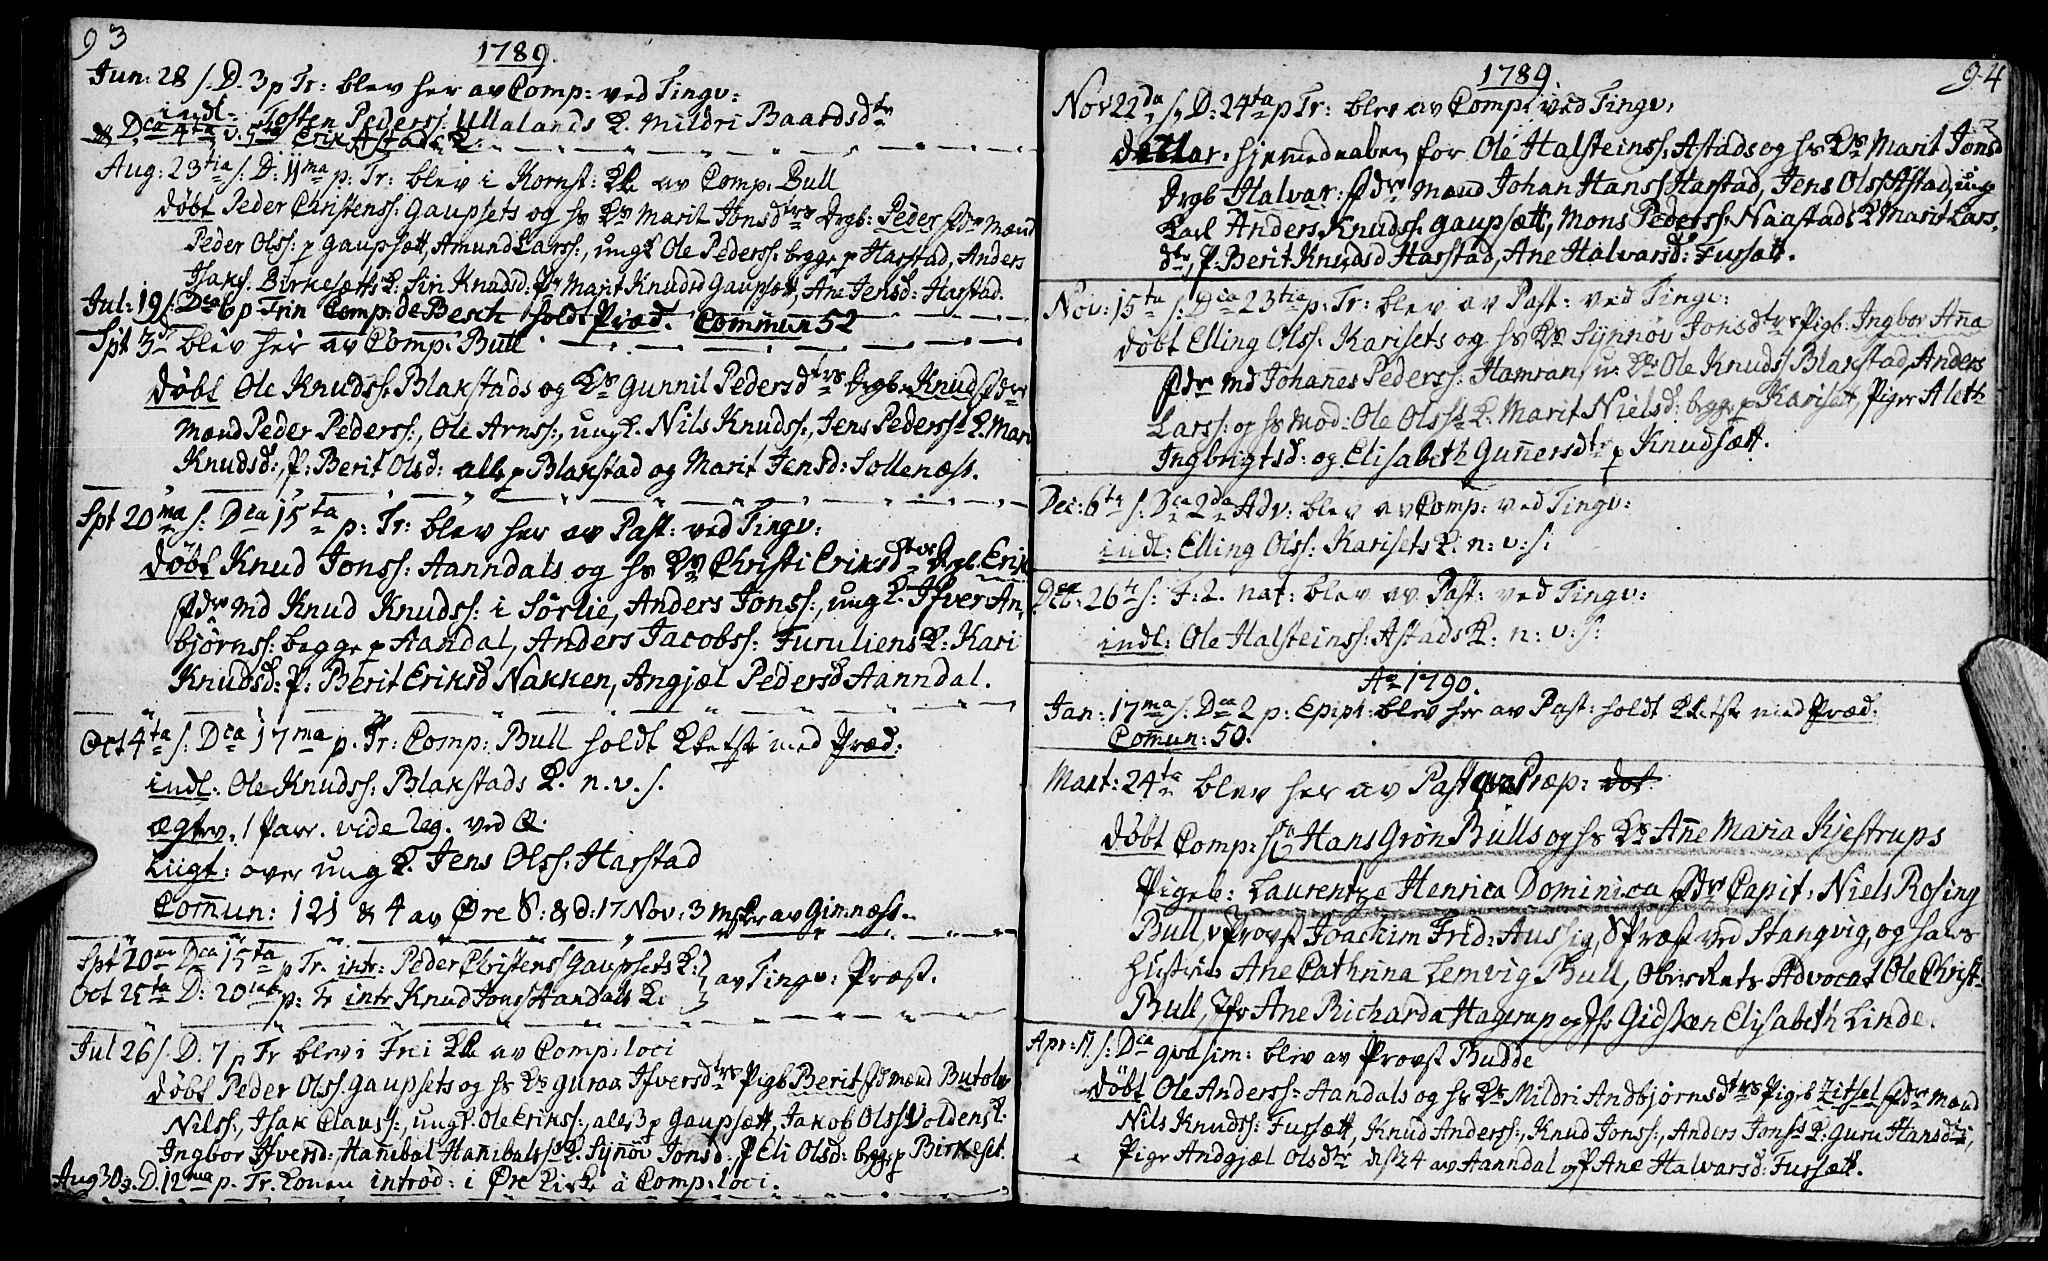 93
1789.
Jun: 28 s. D. 3 p Tr: blev her av Comp: ved Tingv:
indl: Tosten Peders: Ullalands K. Mildri Baardsdtr
& Dca 4ta v. 5ta Erik Astads K.
Aug: 23tia s: D: 11ma p: Tr: blev i Kornst: Kke av Comp: Bull
døbt Peder Christenss: Gaupsets og hs Ks Marit Jonsdtrs Drgb: Peder Fdr Mænd
Peder Olss: p Gaupsætt, Amund Larss:, ungk Ole Pederss: begge p Harstad, Anders
Isaks: Birkesætts K: Siri Knudsd: P: Marit Knudsd Gaupsett, Ane Jensd: Harstad.
Jul: 19 s: Dca 6 p Trin Comp: de Besch holdt Præd. Commun 52
Spt 3d blev her av Comp: Bull
døbt Ole Knudss: Blakstads og Ks Gunnil Pedersdtrs drgb. Knud Fdr
Mænd Peder Pederss:, Ole Arnss:, ungk. Nils Knudss:, Jens Pederss K. Mari
Knudsd:, P: Berit Olsd: alle p Blakstad og Marit Jensd: Sollenæss.
Spt 20ma s: Dca 15ta p: Tr: blev her av Past: ved Tingv:
døbt Knud Jonss: Aanndals og hs Ks Christi Eriksdtrs Drgb. Erik
Fdr Md Knud Knudss: i Sørlie, Anders Jonss:, ungk. Ifver An-
bjørnss: begge p Aandal, Anders Jacobss: Furuliens K: Kari
Knudsd: P: Berit Eriksd Nakken, Angjæl Pedersd Aanndal.
Oct 4ta s: Dca 17ma p. Tr: Comp: Bull holdt Kketste med Præd:
indl: Ole Knudss: Blakstads K. n. v. s.
ægtev. 1 Parr. vide Reg. ved E.
Liigt: over ungk. Jens Olss: Harstad
Comun: 121 & 4 av Øre S: & d: 17 Nov: 3 Mskr av Gimnæss.
Spt 20ma Dca 15ta p Tr. intr: Peder Christens Gaupsets K:
Oct 25ta D: 20 p: Tr intr Knud Jons Aandals K:
av Tingv: Præst.
Jul 26 s: D. 7 p Tr blev i Frei Kke av Comp: loci
døbt Peder Olss. Gaupsets og hs Ks Guroa Ifversdtrs Pigb Berit Fd Mænd Butolv
Nilss:, Isak Clauss:, ungk. Ole Erikss:, alle 3 p Gaupsætt, Jakob Olss Voldens K.
Ingbor Ifversd:, Hanibal Hanibals K. Synøv Jonsd:, P Eli Olsd: begge p Birkeset
Aug 30 s. D. 12ma p. Tr. Konen introd: i Øre Kirke a Comp: loci.

94
1789.
Nov 22da s: D: 24ta p Tr: blev av Comp: ved Tingv:
hjemedaaben for Ole Halsteinss: Astads og hs Ks Marit Jonsd
Drgb Halvar: Fdr Mænd Johan Hanss Harstad, Jens Olss Astad, ung
Karl Anders Knudss: Gaupsætt, Mons Pederss: Naastads K Marit Lars-
dtr, P: Berit Knudsd Harstad, Ane Halvarsd: Fursætt.
Nov: 15ta s: Dca 23tia p: Tr: blev av Past: ved Tingv:
døbt Elling Olss: Karisets og hs Ks Synnøv Jonsdtrs Pigb: Ingbor Ana
Fdr Md Johanes Peders: Hamran, u: K: Ole Knuds Blakstad, Anders
Larss: og hs Mod: Ole Olss K. Marit Nielsd: begge p Karisett, Piger Aleth
Ingbrigtsd: og Elisabeth Gunersdtr p Knudsætt.
Dec: 6ta s: Dca 2da Adv: blev av Comp: ved Tingv:
indl: Elling Olss: Karisets K. n: v: s:
Dec: 26 s: F. 2. nat: blev av Past: ved Tingv:
indl: Ole Halsteinss: Astads K: n: v: s:
Ao 1790.
Jan: 17ma s: Dca 2 p: Epiph: blev her av Past: holdt Kketste med Præd:
Comun: 50.
Mart: 24ta blev her av Past qva Præp: døt
døbt Comp: Hans Grøn Bulls og hs Ks Ane Maria Kjestrups
Pigeb: Laurentze Henrica Dominica Fdr Capit: Niels Rosing
Bull, Provst Joachim Frid: Aussig, SPræst ved Stangvig, og hans
Hustrue Ane Cathrina Lemvig Bull, OberRets Advocat Ole Christ-
Bull, Jfr Ane Richarda Hagerup og Jfr Gidsken Elisabeth Linde.
Apr: 11 s: Dca qvasim: blev av Provst Budde
døbt Ole Anderss: Aandals og hs Ks Mildri Andbjørnsdtrs Pigeb Zitsel Fdr Mænd
Nils Knudss: Fursætt, Knud Anderss:, Knud Jonss:, Anders Jonss K: Guru Hansdtr,
Piger Andgjæl Olsdtr diss 4 av Aanndal og P Ane Halvarsd: Fursætt.